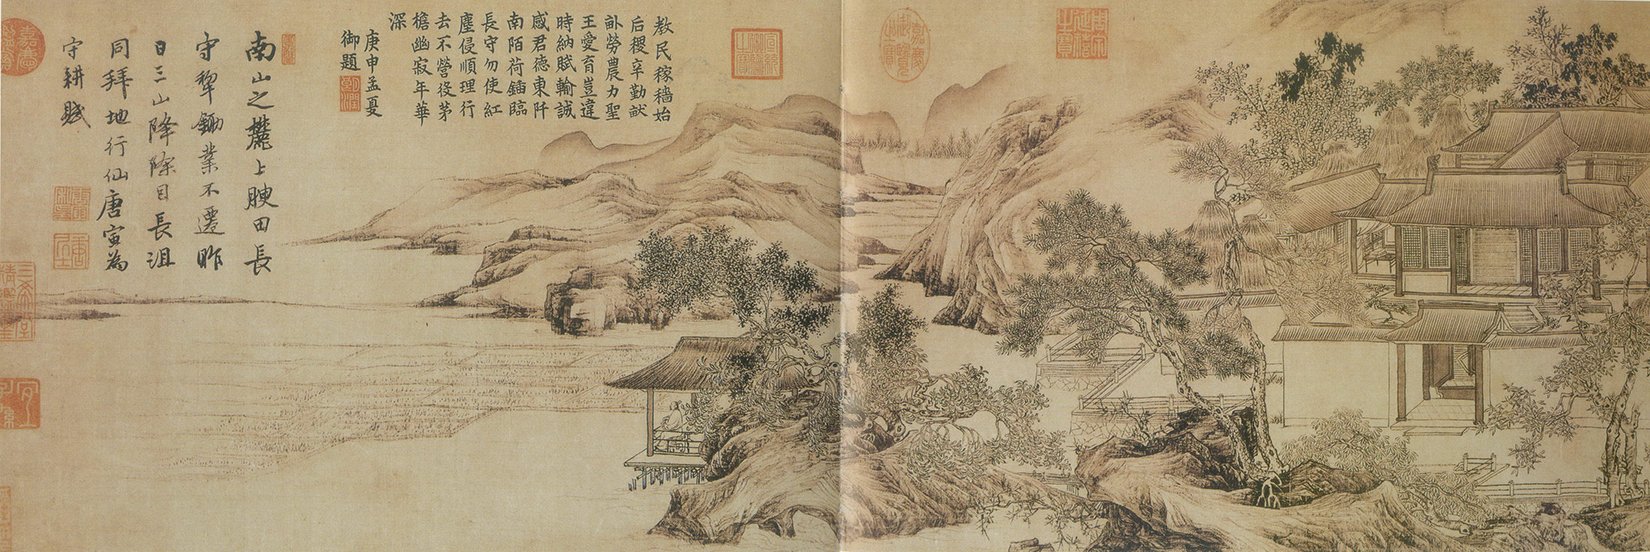 嘉慶御覽之寶
教民稼穡始
后稷辛勤畎
畝勞農力聖
王愛育豈違
時納賦輸誠
感君德東阡
南陌荷鍤臨
長守勿使紅
塵侵順理行
去不營役茅
檐幽寂年華
深
庚申孟夏
御題
南山之麓上腴田長
守犂鋤業不遷昨
日三山降除目長沮
同拜地行仙唐寅為
守耕賦
三希堂精鑑璽
宜子孫